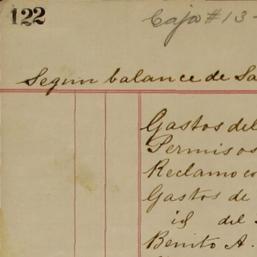 122
Caja #13-
Segun balance de Sa
Gastos del
Permisos
Reclamos
Gastos de
id del
Benito A.